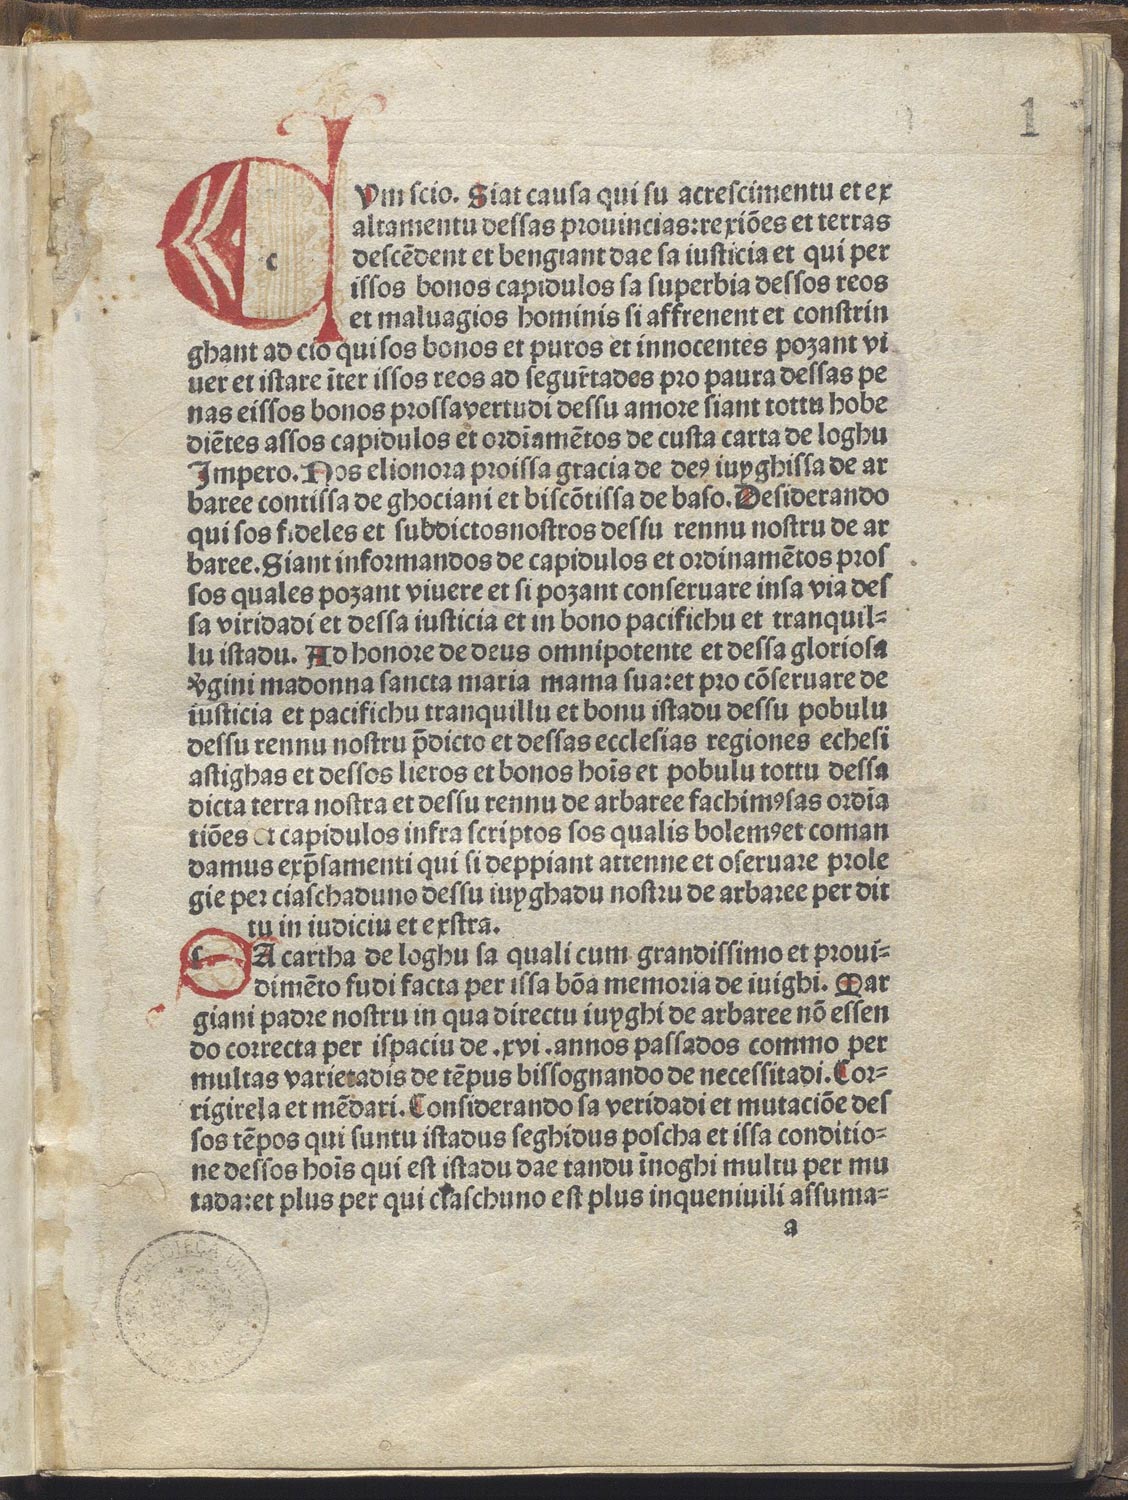 1
CVm scio. Siat causa qui su acrescimentu et ex
altamentu dessas prouincias: rexiões et terras
descẽdent et bengiant dae sa iusticia et qui per
issos bonos capidulos sa superbia dessos reos
et maluagios hominis si affrenent et constrin
ghant ad cio qui sos bonos et puros et innocentes pozant vi
uer et istare ĩter issos reos ad segurtades pro paura dessas pe
nas eissos bonos prossavertudi dessu amore siant tottu hobe
diẽtes assos capidulos et ordĩamẽtos de custa carta de loghu
Impero. Nos elionora proissa gracia de deꝰ iuyghissa de ar
baree contissa de ghociani et biscõtissa de baso. Desiderando
qui sos fideles et subdictosnostros dessu rennu nostru de ar
baree. Siant informandos de capidulos et ordinamẽtos pros
sos quales pozant viuere et si pozant conseruare insa via des
sa viridadi et dessa iusticia et in bono pacifichu et tranquil=
lu istadu. Ad honore de deus omnipotente et dessa gloriosa
v̾gini madonna sancta maria mama sua: et pro cõseruare de
iusticia et pacifichu tranquillu et bonu istadu dessu pobulu
dessu rennu nostru p̃dicto et dessas ecclesias regiones echesi
astighas et dessos lieros et bonos hoĩs et pobulu tottu dessa
dicta terra nostra et dessu rennu de arbaree fachimꝰ sas ordĩa
tiões et capidulos infra scriptos sos qualis bolemꝰ et coman
damus exp̃samenti qui si deppiant attenne et oseruare prole
gie per ciaschaduno dessu iuyghadu nostru de arbaree per dit
tu in iudiciu et exstra.
SA cartha de loghu sa quali cum grandissimo et prouí=
dimẽto fudi facta per issa bõa memoria de iuighi. Mar
giani padre nostru in qua directu iuyghi de arbaree nõ essen
do correcta per ispaciu de .xvi. annos passados commo per
multas varietadis de tẽpus bissognando de necessitadi. Cor=
rigirela et mẽdari. Considerando sa veridadi et mutaciõe des
sos tẽpos qui suntu istadus seghidus poscha et issa conditio=
ne dessos hoĩs qui est istadu dae tandu ĩnoghi multu per mu
tada: et plus per qui ciaschuno est plus inqueniuili assuma=
a